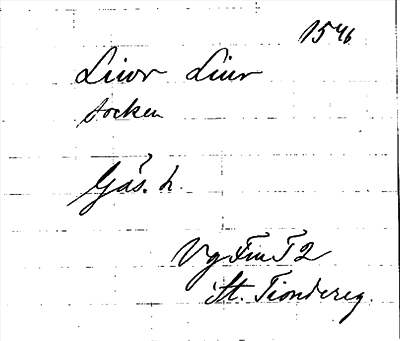 1546
Liur Liur
socken
Gäs. h.
Vg Fm T 2
St. Tiondereg.